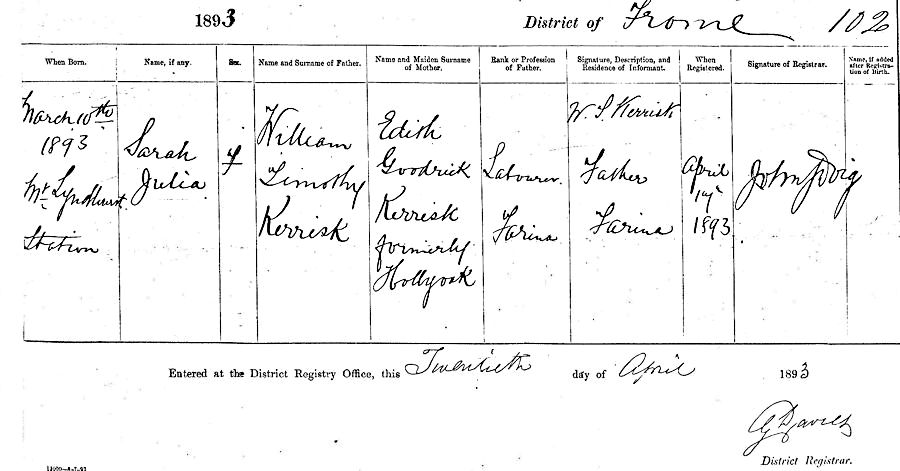 1893 District of Frome 102
When Born. Name, if any. Sex. Name and Surname of Father. Name and Maiden Surname of Mother. Rank or Profession of Father. Signature, Description, and Residence of Informant. When Registered. Signature of Registrar. Name, if added after Registration of Birth.
March 10th
1893
Mt Lyndhurst
Station
Sarah
Julia
f
William
Timothy
Kerrisk
Edith
Goodrick
Kerrisk
formerly
Hollyoak
Labourer
Farina
W. T. Kerrisk
Father
Farina
April
1893
John Doig
Entered at the District Registry Office, this Twentieth day of April 1893
District Registrar.